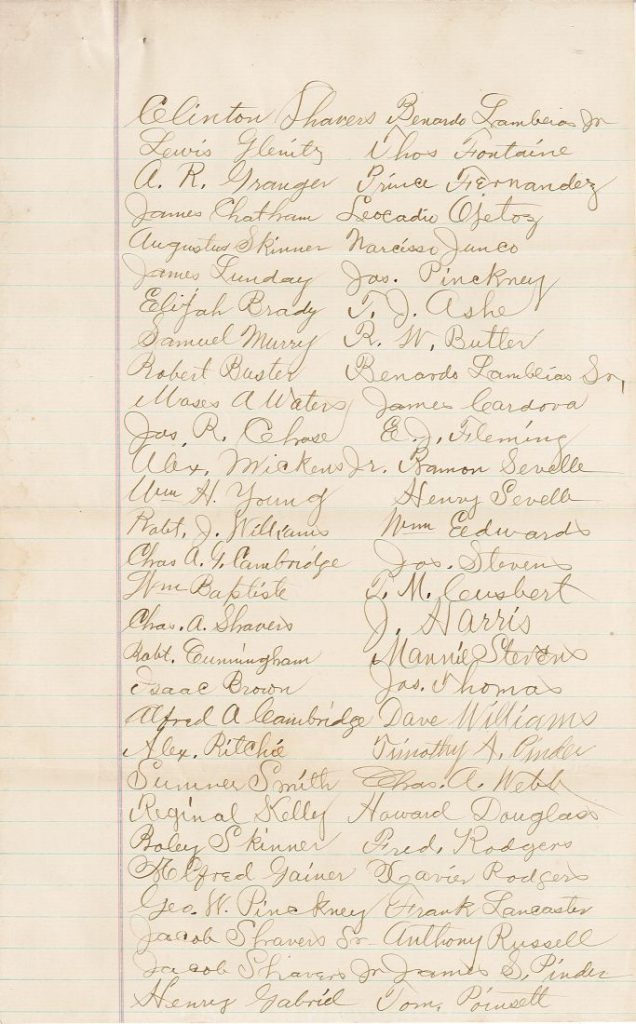 Clinton Shavers Benardo Lambeias Jr
Lewis Glenitz Thos Fontaine
A. R. Granger Prince Fernandez
James Chatham Leocadio
Augustus Skinner Narcisso Junco
James Lunday Jos. Pinckney
Elijah Brady T. J. Ashe
Samuel Murry R. W. Butler
Robert Buster Benardo Lambeias Sr,
Moses A Waters James Cardova
Jas. R. Chase E. J. Fleming
Alex. Mickens Jr. Ramon Sevelle
Wm H. Young Henry Sevelle
Robt. J. Williams Wm Eedwards
Chas A. G. Cambridge Jos. Stevens
Wm Baptiste M. Cusbert
Chas. A. Shavers J. Harris
Robt. Cunningham Mannie Stevens
Isaac Brown Jos. Thomas
Alfred A Cambridge Dave Williams
Alex. Ritchie Timothy A. Pinder
Sumner Smith Chas. A. Webb
Reginal Kelly Howard Douglass
Boley Skinner Fred. Rodgers
Alfred Gainer Xavier Rodgers
Geo. W. Pinckney Frank Lancaster
Jacob Shavers Sr Anthony Russell
Jacob Shavers Jr James S. Pinder
Henry Gabriel Tom. Poinsett